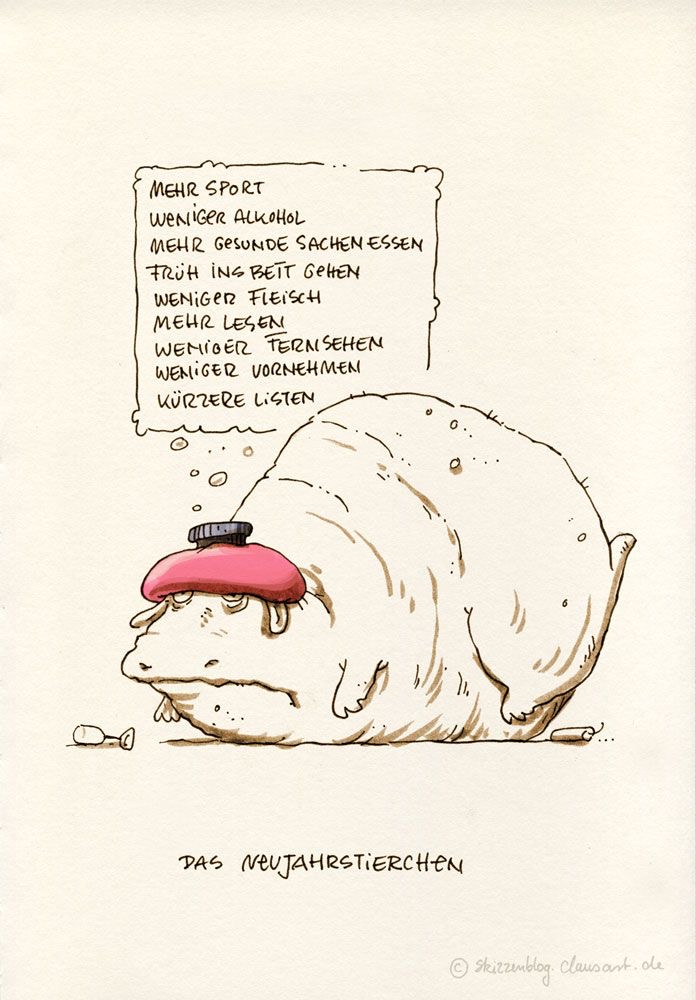 MEHR SPORT
WENIGER ALKOHOL
MEHR GESUNDE SACHEN ESSEN
FRÜH INS BETT GEHEN
WENIGER FLEISCH
MEHR LESEN
WENIGER FERNSEHEN
WENIGER VORNEHMEN
KÜRZERE LISTEN
DAS NEUJAHRSTIERCHEN
© skizzenblog.clausast.de